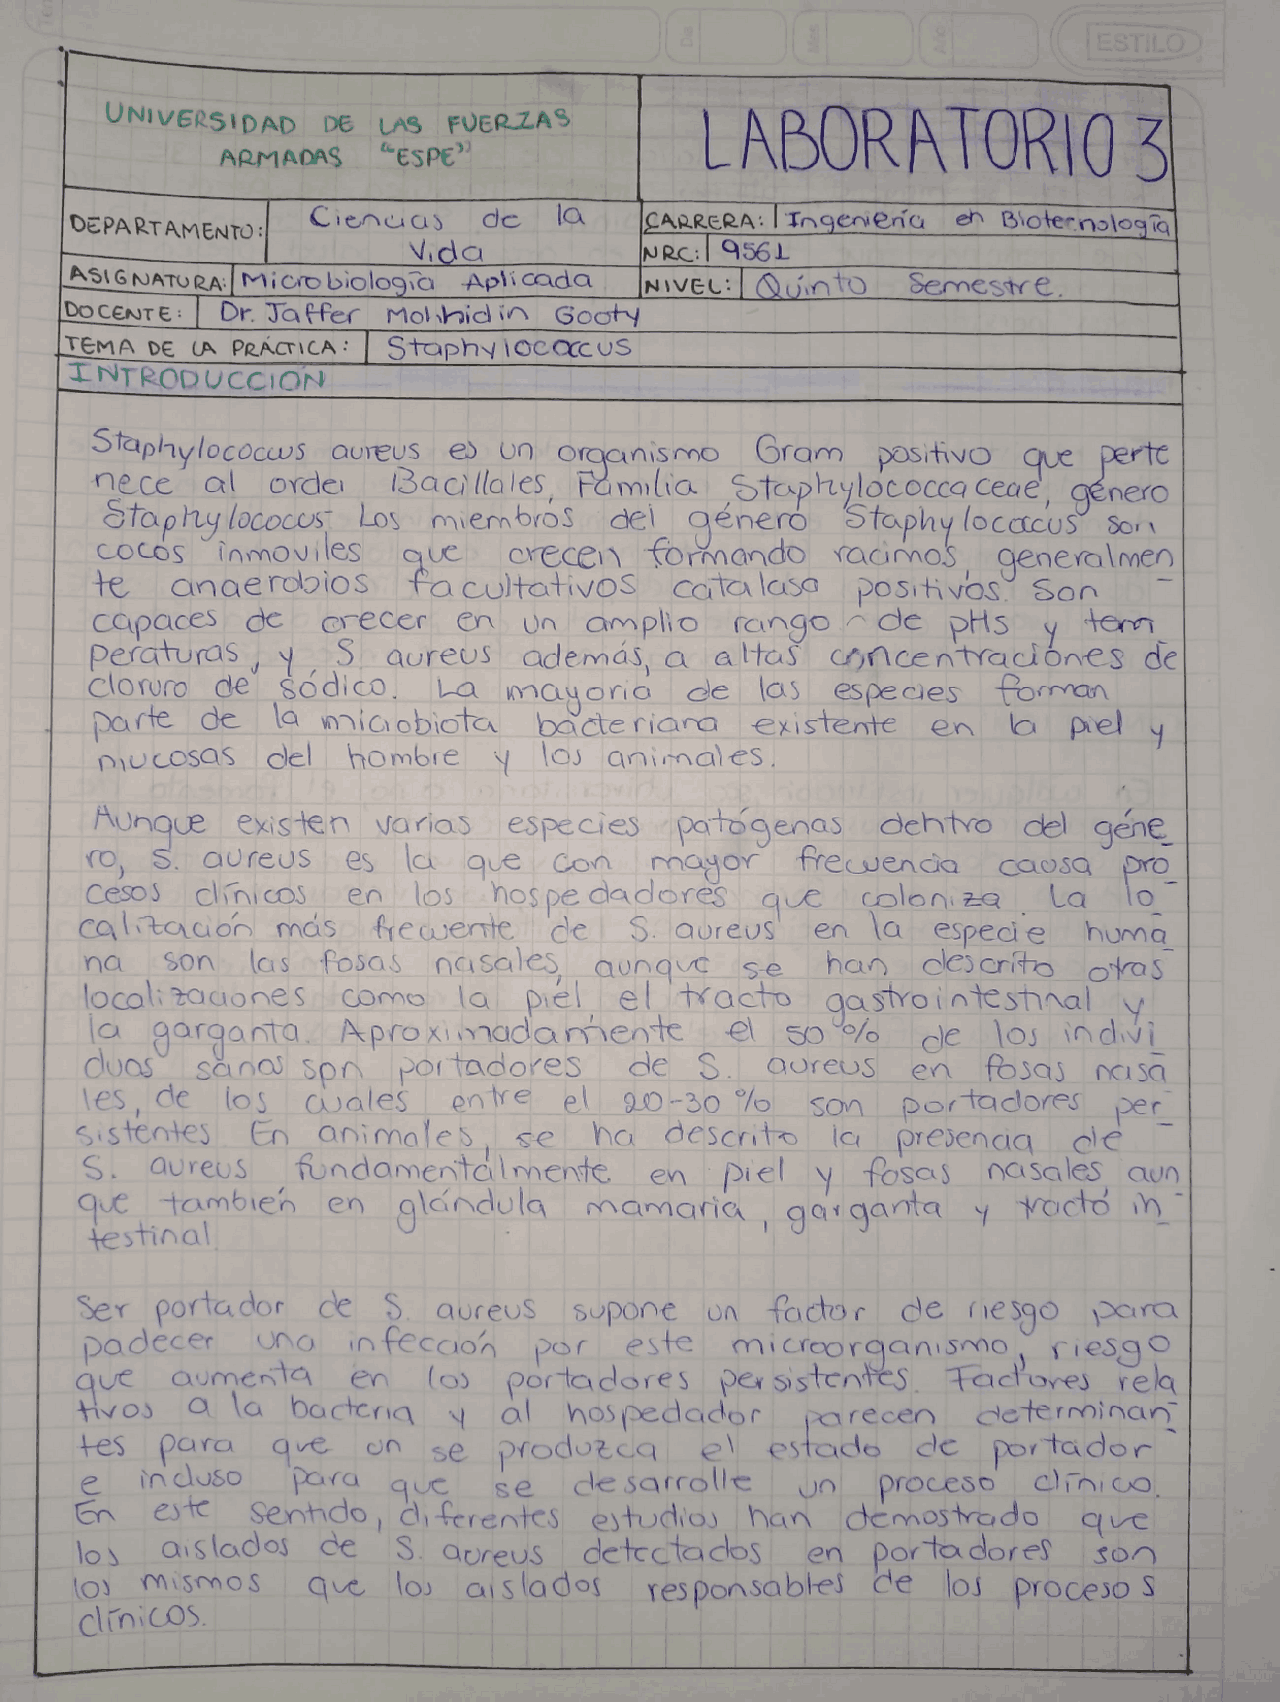 ESTILO
UNIVERSIDAD DE LAS FUERZAS
ARMADAS "ESPE"
LABORATORIO 3
DEPARTAMENTO:
Ciencias de la
Vida
CARRERA: Ingeniería en Biotecnología
NRC: 9561
ASIGNATURA: Microbiología Aplicada
NIVEL: Quinto Semestre.
DOCENTE: Dr. Jaffer Mohhidin Gooty
TEMA DE LA PRÁCTICA: Staphylococcus
INTRODUCCIÓN
Staphylococcus aureus es un organismo Gram positivo que perte
nece al orden Bacillales, Familia Staphylococcaceae, género
Staphylococus. Los miembros del género Staphylococcus son
cocos inmoviles que crecen formando racimos, generalmen
te anaerobios facultativos catalasa positivos. Son
capaces de crecer en un amplio rango de pHs y tem
peraturas, y S. aureus además, a altas concentraciones de
cloruro de sódico. La mayoria de las especies forman
parte de la microbiota bacteriana existente en la piel y
mucosas del hombre y los animales.
Aunque existen varias especies patógenas dentro del géne_
ro, S. aureus es la que con mayor frecuencia causa pro_
cesos clínicos en los hospedadores que coloniza. La lo_
calización más frecuente de S. aureus en la especie huma_
na son las fosas nasales, aunque se han descrito otras
localizaciones como la piel el tracto gastrointestinal y
la garganta. Aproximadamente el 50% de los indivi_
duos sanos son portadores de S. aureus en fosas nasa_
les, de los cuales entre el 20-30% son portadores per_
sistentes. En animales, se ha descrito la presencia de
S. aureus fundamentalmente en piel y fosas nasales, aun_
que también en glándula mamaria, garganta y tracto in_
testinal.
Ser portador de S. aureus supone un factor de riesgo para
padecer una infección por este microorganismo, riesgo
que aumenta en los portadores persistentes. Factores rela_
tivos a la bacteria y al hospedador parecen determinan_
tes para que un se produzca el estado de portador
e incluso para que se desarrolle un proceso clínico.
En este sentido, diferentes estudios han demostrado que
los aislados de S. aureus detectados en portadores son
los mismos que los aislados responsables de los procesos
clínicos.